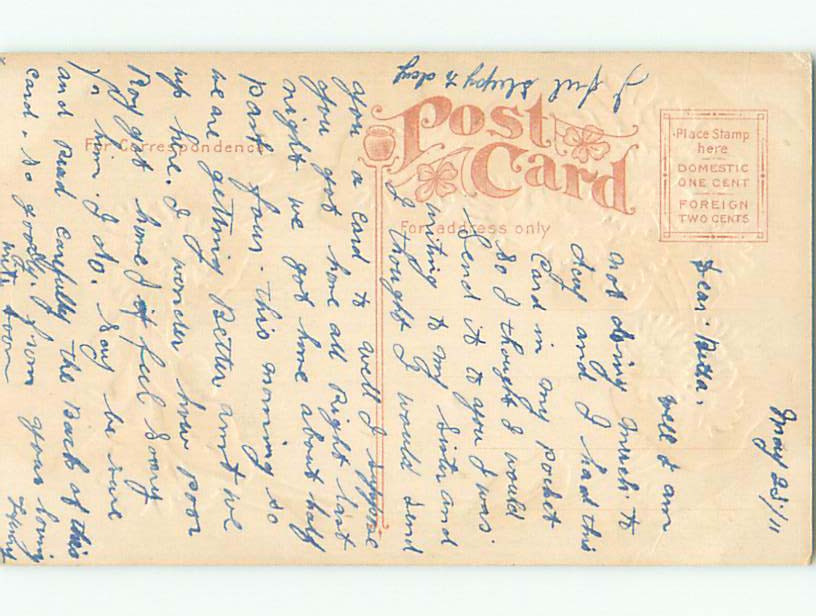 May 25/11
Dear
well I am
not doing much to
day and I had this
Card in my pocket
so I thought I would
Send it to you I was
writing to my sister and
I thought I would send
you a card to well I suppose
you got home all Right last
night we got home about half
past four. This morning so
we are getting Better arn't we
up here. I wonder how poor
Roy got home I feel sorry
for him. I do. Say be sure
and read carefully the Back of this
card. so goodby. from your loving
write soon
I feel sleepy to day
Post
Card
For Correspondence
For address only
Place Stamp
here
DOMESTIC
ONE CENT
FOREIGN
TWO CENTS